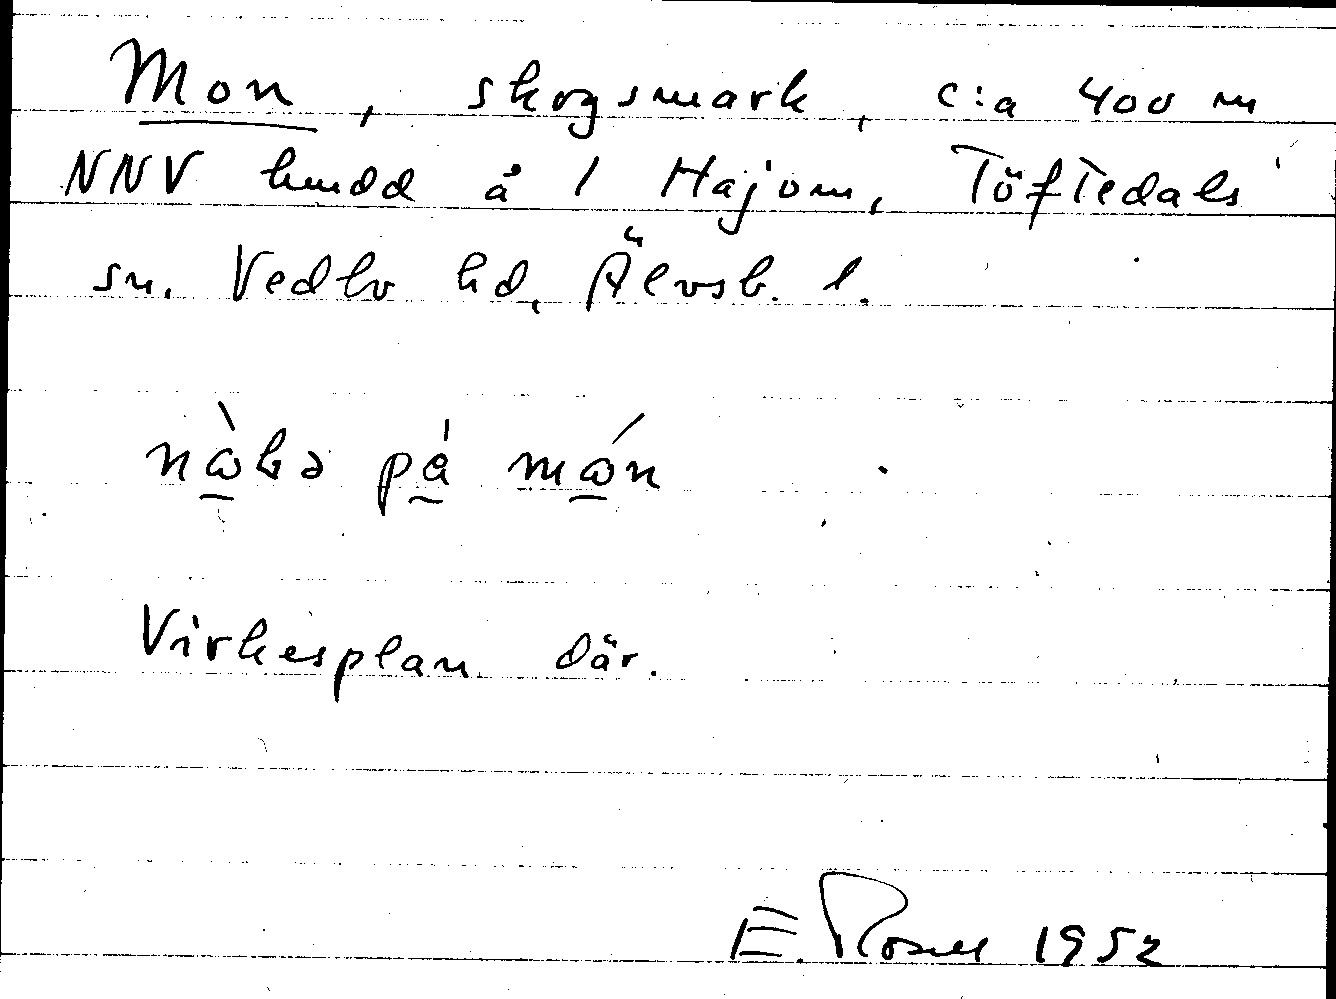 Mon, skogsmark, c:a 400 m
NNV huvudd å 1 Hajom, Töftedals
sn. Vedbo hd, Älvsb. l.
nåkə på mån
Virkesplan där.
E. Rosell 1952